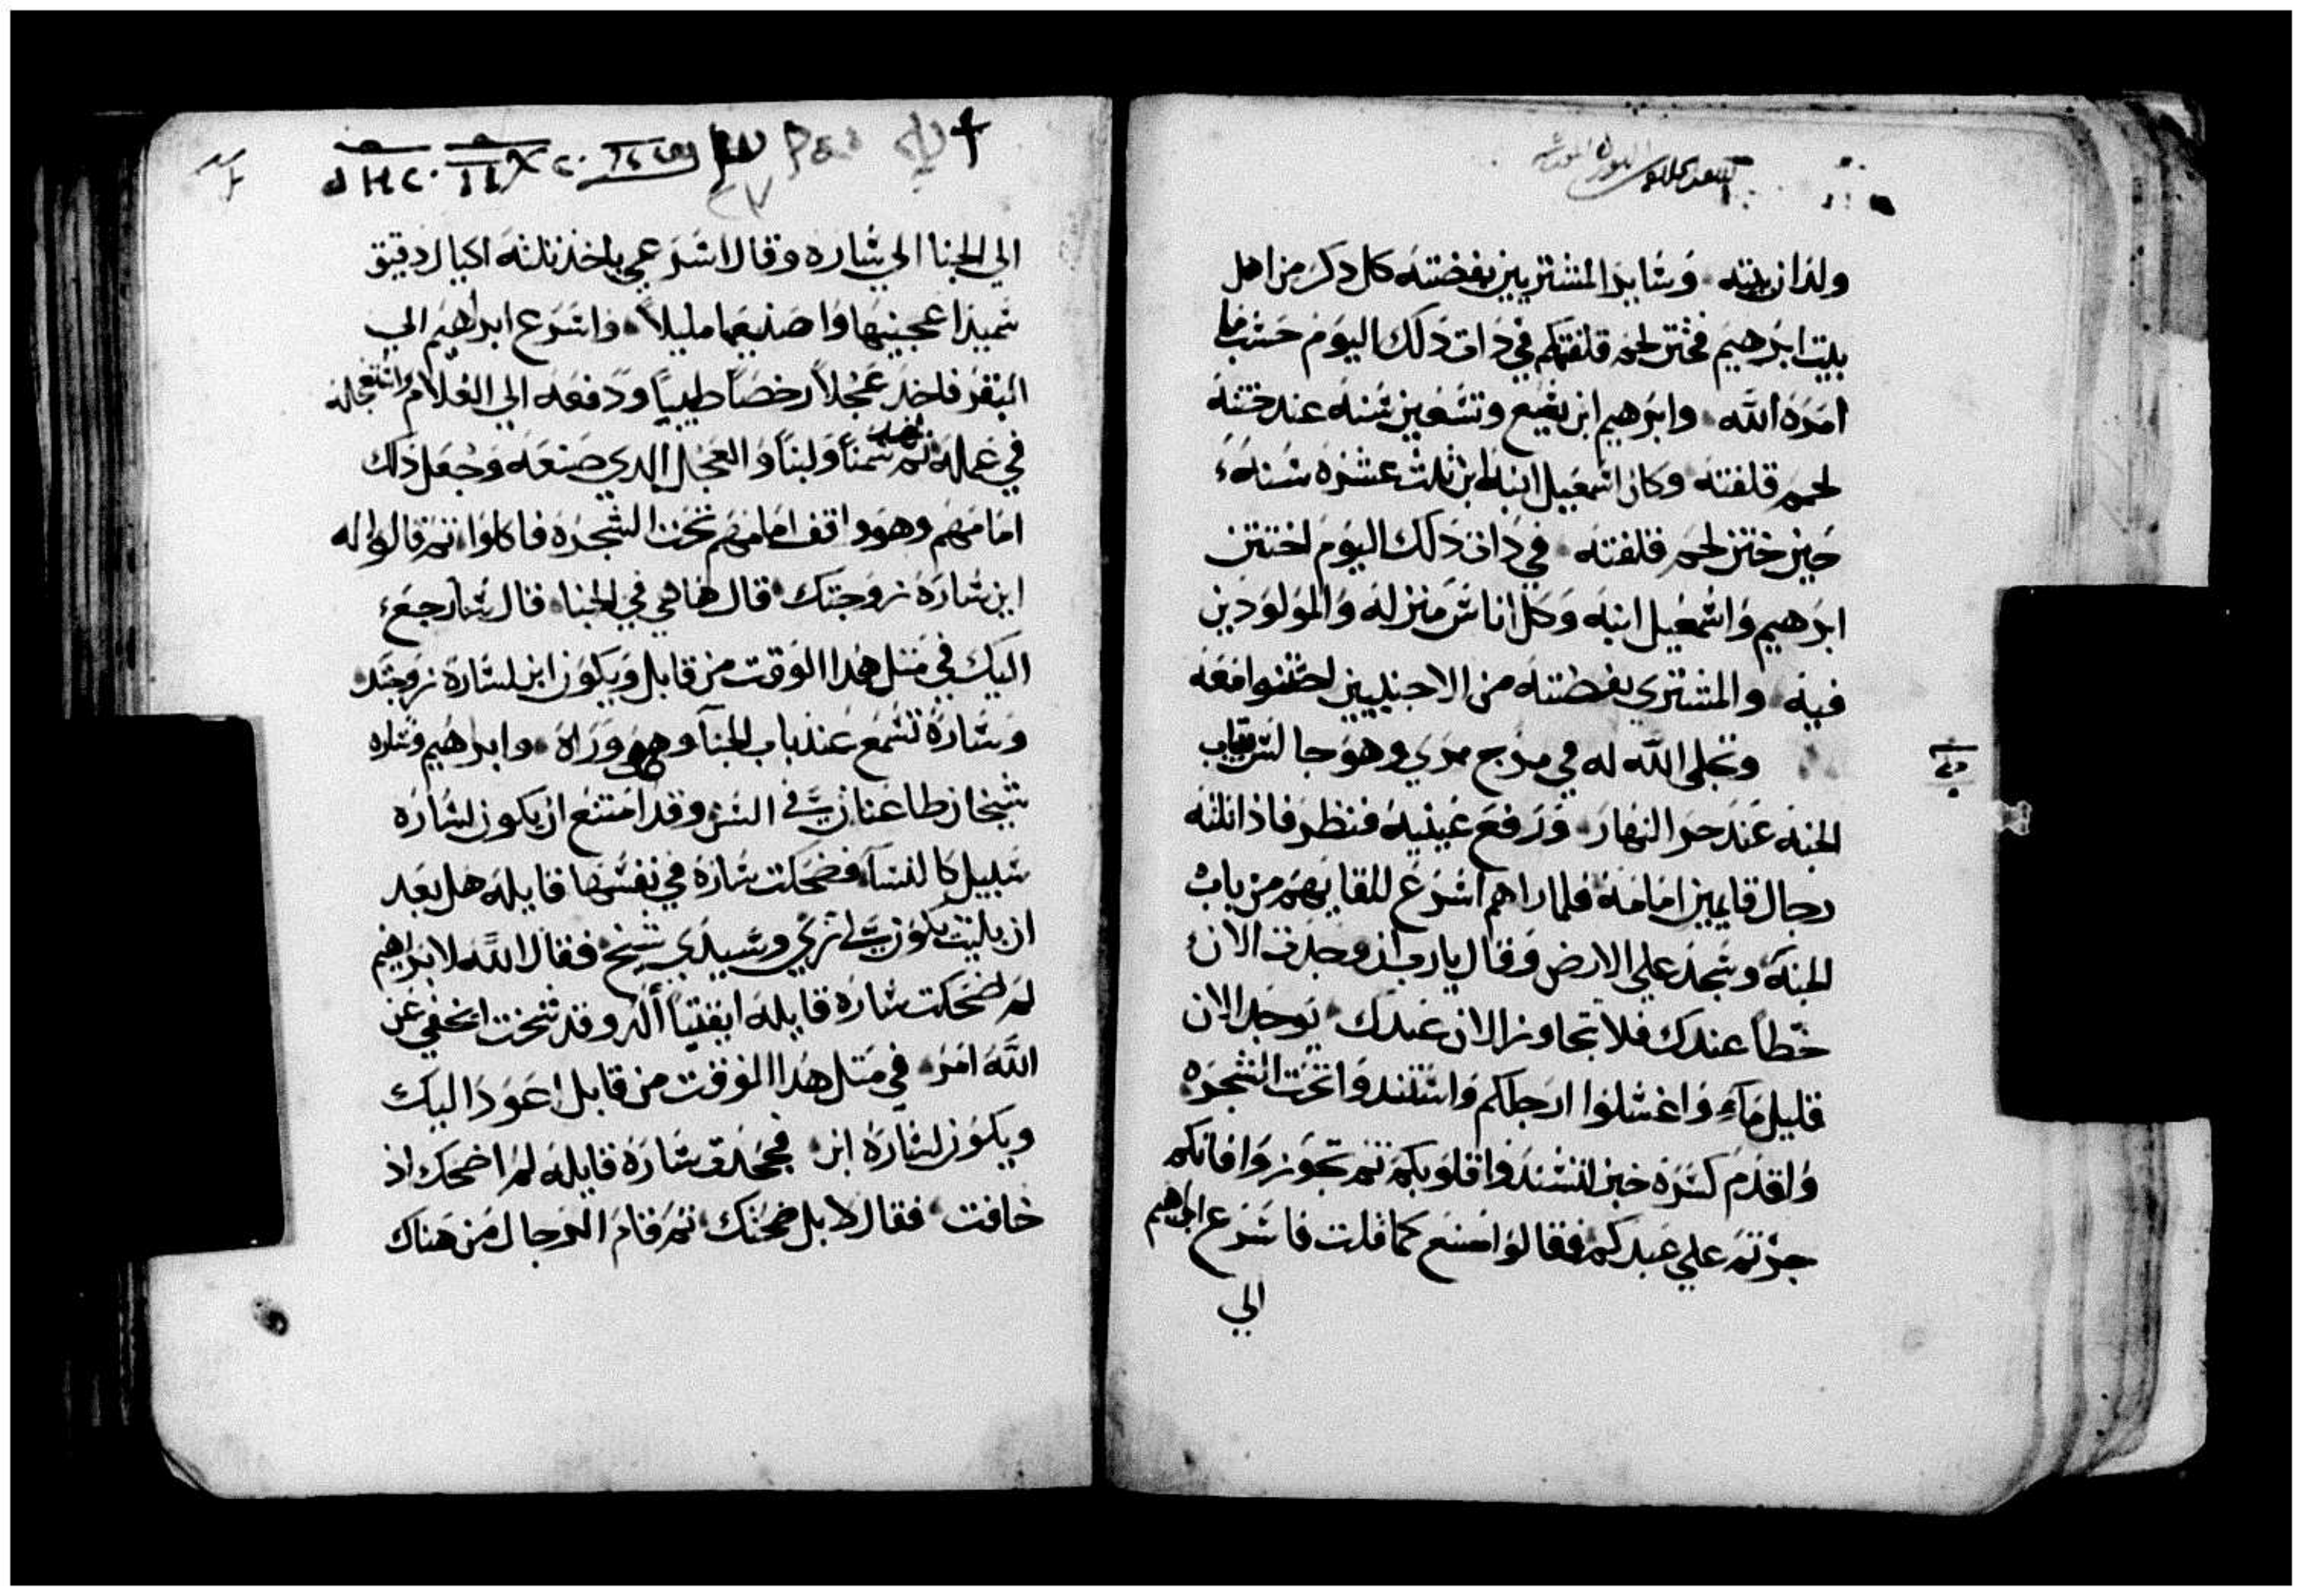 ولدان بيته وسايرا المشتريين بفضته كل دكر من اهل
بيت ابرهيم فختن لحم قلفتهم في دات دلك اليوم حسب ما
امره الله وابرهيم ابن تسع وتسعين سنه عند ختنه
لحم قلفته وكان اسمعيل ابنه ابن ثلث عشره سنه
حين ختن لحم قلفته في دات دلك اليوم اختتن
ابرهيم واسمعيل ابنه وكل اناس منزله والمولودين
فيه والمشتري بفضته من الاجنبيين اختتنوا معه
وتجلى الله له في مرج ممري وهو جالس بباب
الخبه عند حر النهار ورفع عينيه فنظر فاذا ثلثه
رجال قايمين امامه فلما راهم اسرع للقايهم من باب
الخبه وسجد علي الارض وقال يارب ان وجدت الان
خطا عندك فلا تجاوز الان عبدك يوجد الان
قليل ماء واغسلوا ارجلكم واستندوا تحت الشجره
واقدم كسره خبز اتسندوا قلوبكم ثم تجوزوا فانكم
جزتم علي عبدكم فقالوا اصنع كما قلت فاسرع ابرهيم
الي
الي الخبا الي ساره وقال اسرعي ياخذ ثلثه اكيال دقيق
سميدا عجينيها واصنعيها مليلا واسرع ابراهيم الي
البقر فاخد عجلا رخصا طيبا ودفعه الي الغلام وانتعجله
في عمله ثم سمنا ولبنا والعجل الدي صنعه وجعل ذلك
امامهم وهو واقف امامهم تحت الشجره فاكلوا ثم قالوا له
اين ساره زوجتك قال هاهي في الخبا قال سارجع
اليك في متل هدا الوقت من قابل ويكون ابن لساره زوجتك
وساره تسمع عند باب الخبا وهو وراه وابرهيم وساره
شيخان طاعنان في السن وقد امتنع ان يكون لساره
سبيل كالنسا فضحكت ساره في نفسها قايله هل بعد
ان بليت يكون لي تري وسيدي شيخ فقال الله لابراهيم
لم ضحكت ساره قايله ايقينا ألد وقد شخت ايخفي عن
الله امر في متل هدا الوقت من قابل اعود اليك
ويكون لساره ابن فجحدت ساره قايله لم اضحك اذ
خافت فقال لا بل ضحكت ثم قام الرجال من هناك